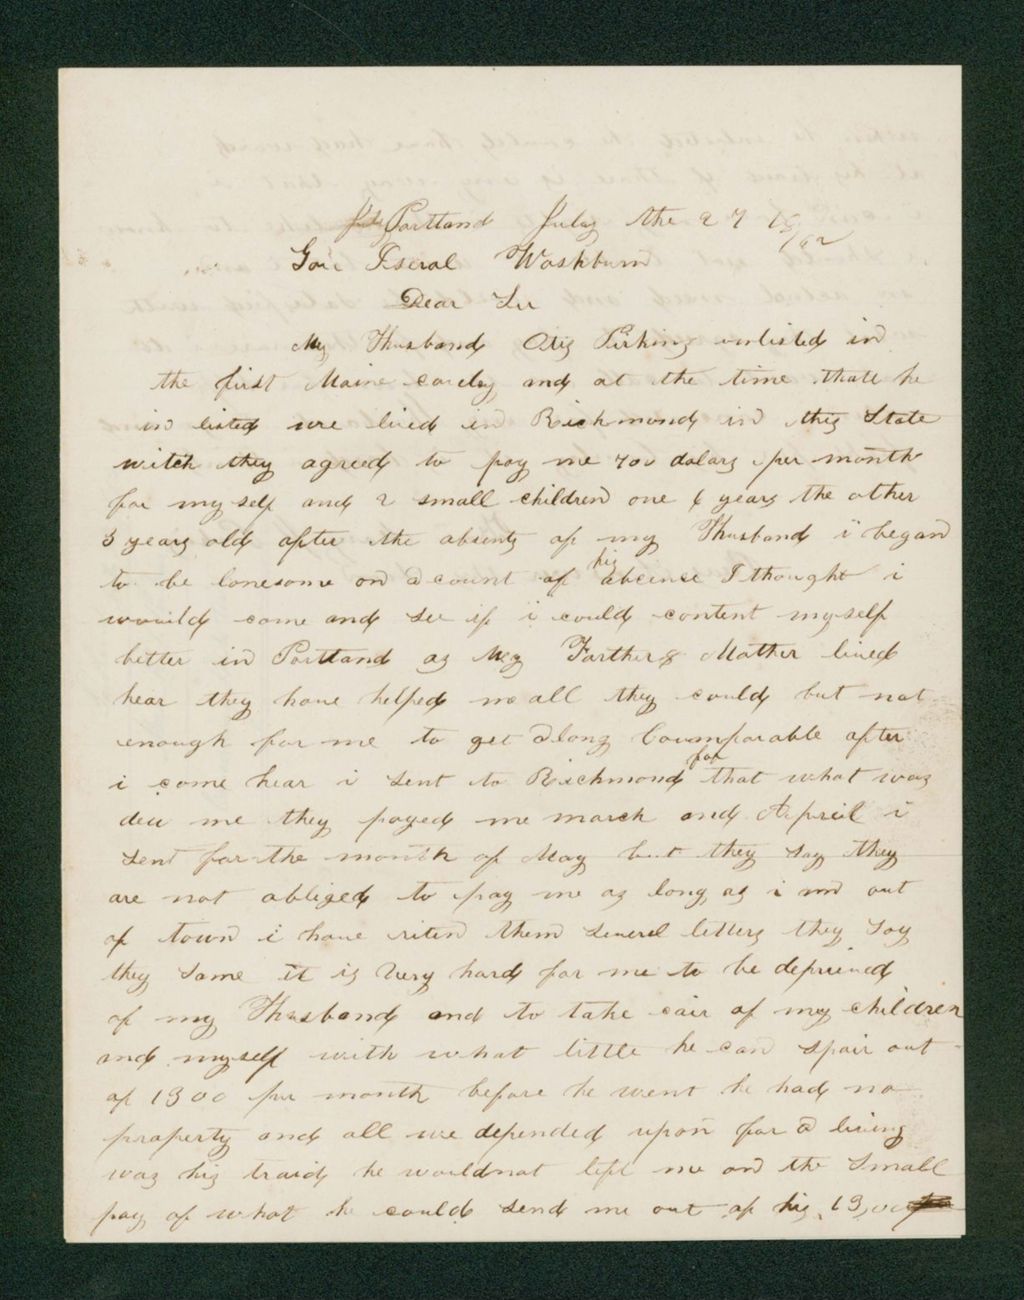 Portland July the 27 18/62
Gov Iseral Washburn
Dear Sir
My Husband Otis Pirkins enlisted in
the first Maine cavley and at the time thatt he
in listed wre lived in Richmond in this State
witch they agreed to pay me 700 dolars per month
for my self and 2 small children one 6 years the other
3 years old after the absents of my Husband i began
to be lonesome on acount of his abcence I thought i
would come and see if i could content my self
better in Portland as My Farther & Mother lived
hear they have helped me all they could but not
enough for me to get along Coumforable after
i come hear i sent to Richmond for that what was
deu me they payed me march and Apriel i
sent for the month of May but they say they
are not obliged to pay me as long as i am out
of town i have riten them severel letters they say
they same it is very hard for me to be deprived
of my Husband and to take cair of my children
and my self with what little he can spair out
of 1300 per month before he went he had no
property and all we depended upon for a living
was his traid he would not left me on the small
pay of what he could send me out of his 13,00